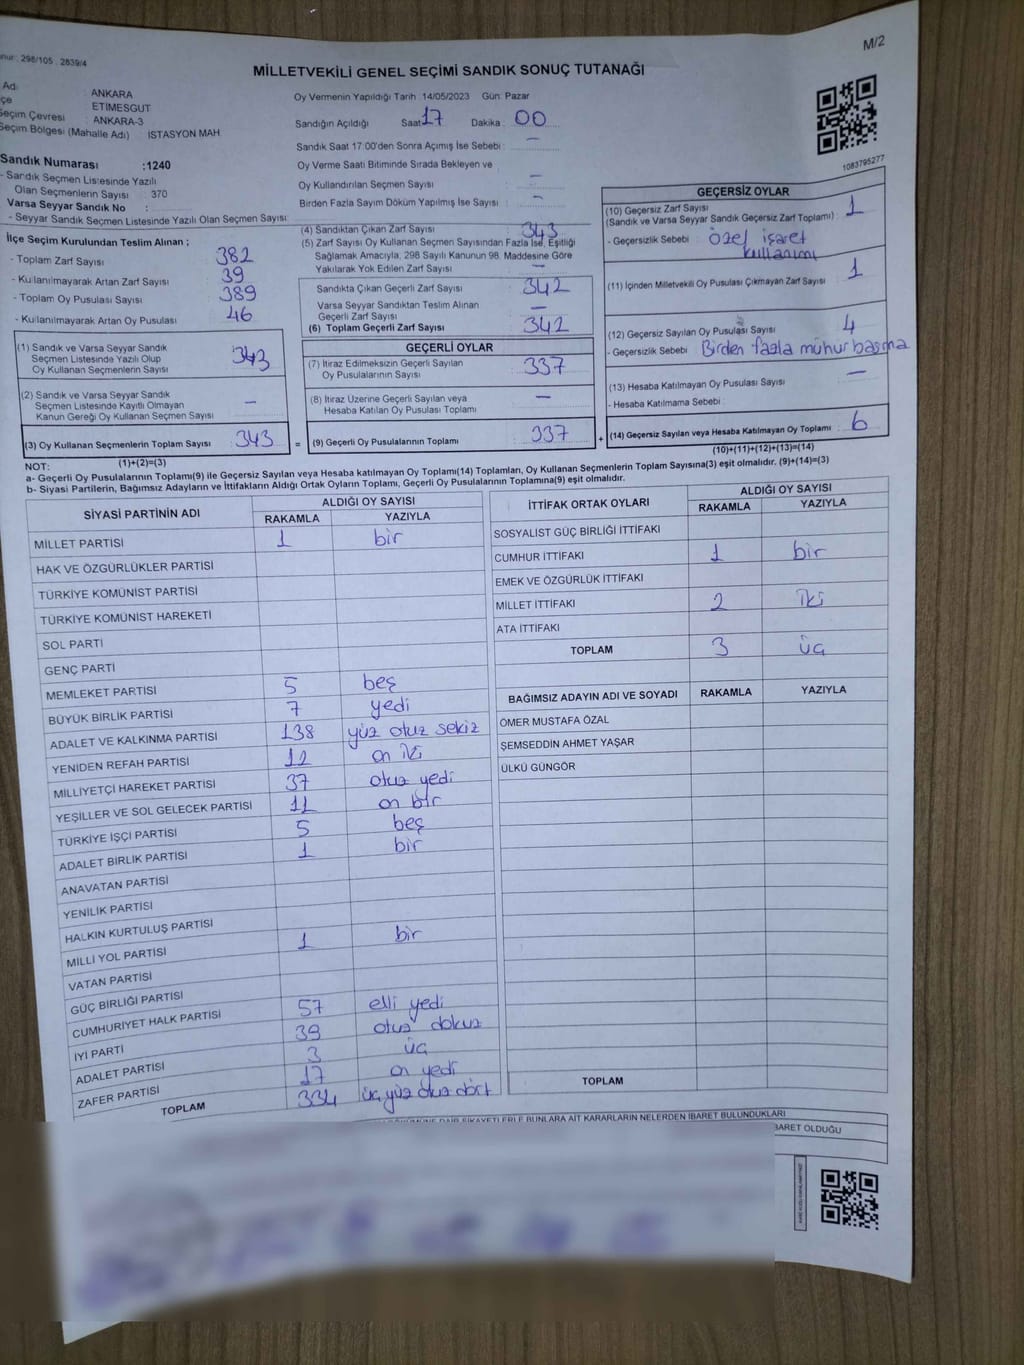 M/2
298/105 . 2839/4
MİLLETVEKİLİ GENEL SEÇİMİ SANDIK SONUÇ TUTANAĞI
ANKARA
ETİMESGUT
Seçim Çevresi : ANKARA-3
Seçim Bölgesi (Mahalle Adı) : İSTASYON MAH
Sandık Numarası :1240
- Sandık Seçmen Listesinde Yazılı
Olan Seçmenlerin Sayısı : 370
Varsa Seyyar Sandık No :
- Seyyar Sandık Seçmen Listesinde Yazılı Olan Seçmen Sayısı:
Oy Vermenin Yapıldığı Tarih : 14/05/2023 Gün: Pazar
Sandığın Açıldığı Saat: 17 Dakika : 00
Sandık Saat 17:00'den Sonra Açımış İse Sebebi : —
Oy Verme Saati Bitiminde Sırada Bekleyen ve
Oy Kullandırılan Seçmen Sayısı : —
Birden Fazla Sayım Döküm Yapılmış İse Sayısı : —
1083795277
İlçe Seçim Kurulundan Teslim Alınan ;
- Toplam Zarf Sayısı : 382
- Kullanılmayarak Artan Zarf Sayısı : 39
- Toplam Oy Pusulası Sayısı : 389
- Kullanılmayarak Artan Oy Pusulası : 46
(1) Sandık ve Varsa Seyyar Sandık
Seçmen Listesinde Yazılı Olup
Oy Kullanan Seçmenlerin Sayısı : 343
(2) Sandık ve Varsa Seyyar Sandık
Seçmen Listesinde Kayıtlı Olmayan
Kanun Gereği Oy Kullanan Seçmen Sayısı : —
(3) Oy Kullanan Seçmenlerin Toplam Sayısı : 343
(1)+(2)=(3)
(4) Sandıktan Çıkan Zarf Sayısı : 343
(5) Zarf Sayısı Oy Kullanan Seçmen Sayısından Fazla İse, Eşitliği
Sağlamak Amacıyla, 298 Sayılı Kanunun 98. Maddesine Göre
Yakılarak Yok Edilen Zarf Sayısı : —
Sandıkta Çıkan Geçerli Zarf Sayısı : 342
Varsa Seyyar Sandıktan Teslim Alınan
Geçerli Zarf Sayısı : —
(6) Toplam Geçerli Zarf Sayısı : 342
GEÇERLİ OYLAR
(7) İtiraz Edilmeksizin Geçerli Sayılan
Oy Pusulalarının Sayısı : 337
(8) İtiraz Üzerine Geçerli Sayılan veya
Hesaba Katılan Oy Pusulası Toplamı : —
= (9) Geçerli Oy Pusulalarının Toplamı : 337
GEÇERSİZ OYLAR
(10) Geçersiz Zarf Sayısı
(Sandık ve Varsa Seyyar Sandık Geçersiz Zarf Toplamı) : 1
- Geçersizlik Sebebi : Özel işaret
kullanımı
(11) İçinden Milletvekili Oy Pusulası Çıkmayan Zarf Sayısı : 1
(12) Geçersiz Sayılan Oy Pusulası Sayısı : 4
- Geçersizlik Sebebi : Birden fazla mühür basma
(13) Hesaba Katılmayan Oy Pusulası Sayısı : —
- Hesaba Katılmama Sebebi :
+ (14) Geçersiz Sayılan veya Hesaba Katılmayan Oy Toplamı : 6
(10)+(11)+(12)+(13)=(14)
NOT:
a- Geçerli Oy Pusulalarının Toplamı(9) ile Geçersiz Sayılan veya Hesaba katılmayan Oy Toplamı(14) Toplamları, Oy Kullanan Seçmenlerin Toplam Sayısına(3) eşit olmalıdır. (9)+(14)=(3)
b- Siyasi Partilerin, Bağımsız Adayların ve İttifakların Aldığı Ortak Oyların Toplamı, Geçerli Oy Pusulalarının Toplamına(9) eşit olmalıdır.
SİYASİ PARTİNİN ADI ALDIĞI OY SAYISI
RAKAMLA YAZIYLA
MİLLET PARTİSİ 1 bir
HAK VE ÖZGÜRLÜKLER PARTİSİ
TÜRKİYE KOMÜNİST PARTİSİ
TÜRKİYE KOMÜNİST HAREKETİ
SOL PARTİ
GENÇ PARTİ
MEMLEKET PARTİSİ 5 beş
BÜYÜK BİRLİK PARTİSİ 7 yedi
ADALET VE KALKINMA PARTİSİ 138 yüz otuz sekiz
YENİDEN REFAH PARTİSİ 12 on iki
MİLLİYETÇİ HAREKET PARTİSİ 37 otuz yedi
YEŞİLLER VE SOL GELECEK PARTİSİ 11 on bir
TÜRKİYE İŞÇİ PARTİSİ 5 beş
ADALET BİRLİK PARTİSİ 1 bir
ANAVATAN PARTİSİ
YENİLİK PARTİSİ
HALKIN KURTULUŞ PARTİSİ
MİLLİ YOL PARTİSİ 1 bir
VATAN PARTİSİ
GÜÇ BİRLİĞİ PARTİSİ
CUMHURİYET HALK PARTİSİ 57 elli yedi
İYİ PARTİ 39 otuz dokuz
ADALET PARTİSİ 3 üç
ZAFER PARTİSİ 17 on yedi
TOPLAM 334 üç yüz otuz dört
İTTİFAK ORTAK OYLARI ALDIĞI OY SAYISI
RAKAMLA YAZIYLA
SOSYALİST GÜÇ BİRLİĞİ İTTİFAKI
CUMHUR İTTİFAKI 1 bir
EMEK VE ÖZGÜRLÜK İTTİFAKI
MİLLET İTTİFAKI 2 iki
ATA İTTİFAKI
TOPLAM 3 üç
BAĞIMSIZ ADAYIN ADI VE SOYADI RAKAMLA YAZIYLA
ÖMER MUSTAFA ÖZAL
ŞEMSEDDİN AHMET YAŞAR
ÜLKÜ GÜNGÖR
TOPLAM
ŞİKAYETLERLE BUNLARA AİT KARARLARIN NELERDEN İBARET BULUNDUKLARI
İBARET OLDUĞU